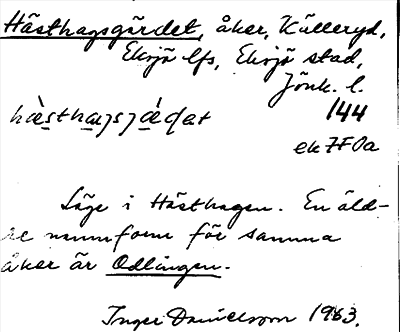 Hästhagsgärdet, åker, Kulleryd,
Eksjö lfs, Eksjö stad,
Jönk. l.
144
ek 7F0a
Läge i Hästhagen. En äld-
re namnform för samma
åker är Odlingen.
Inger Danielsson 1963.